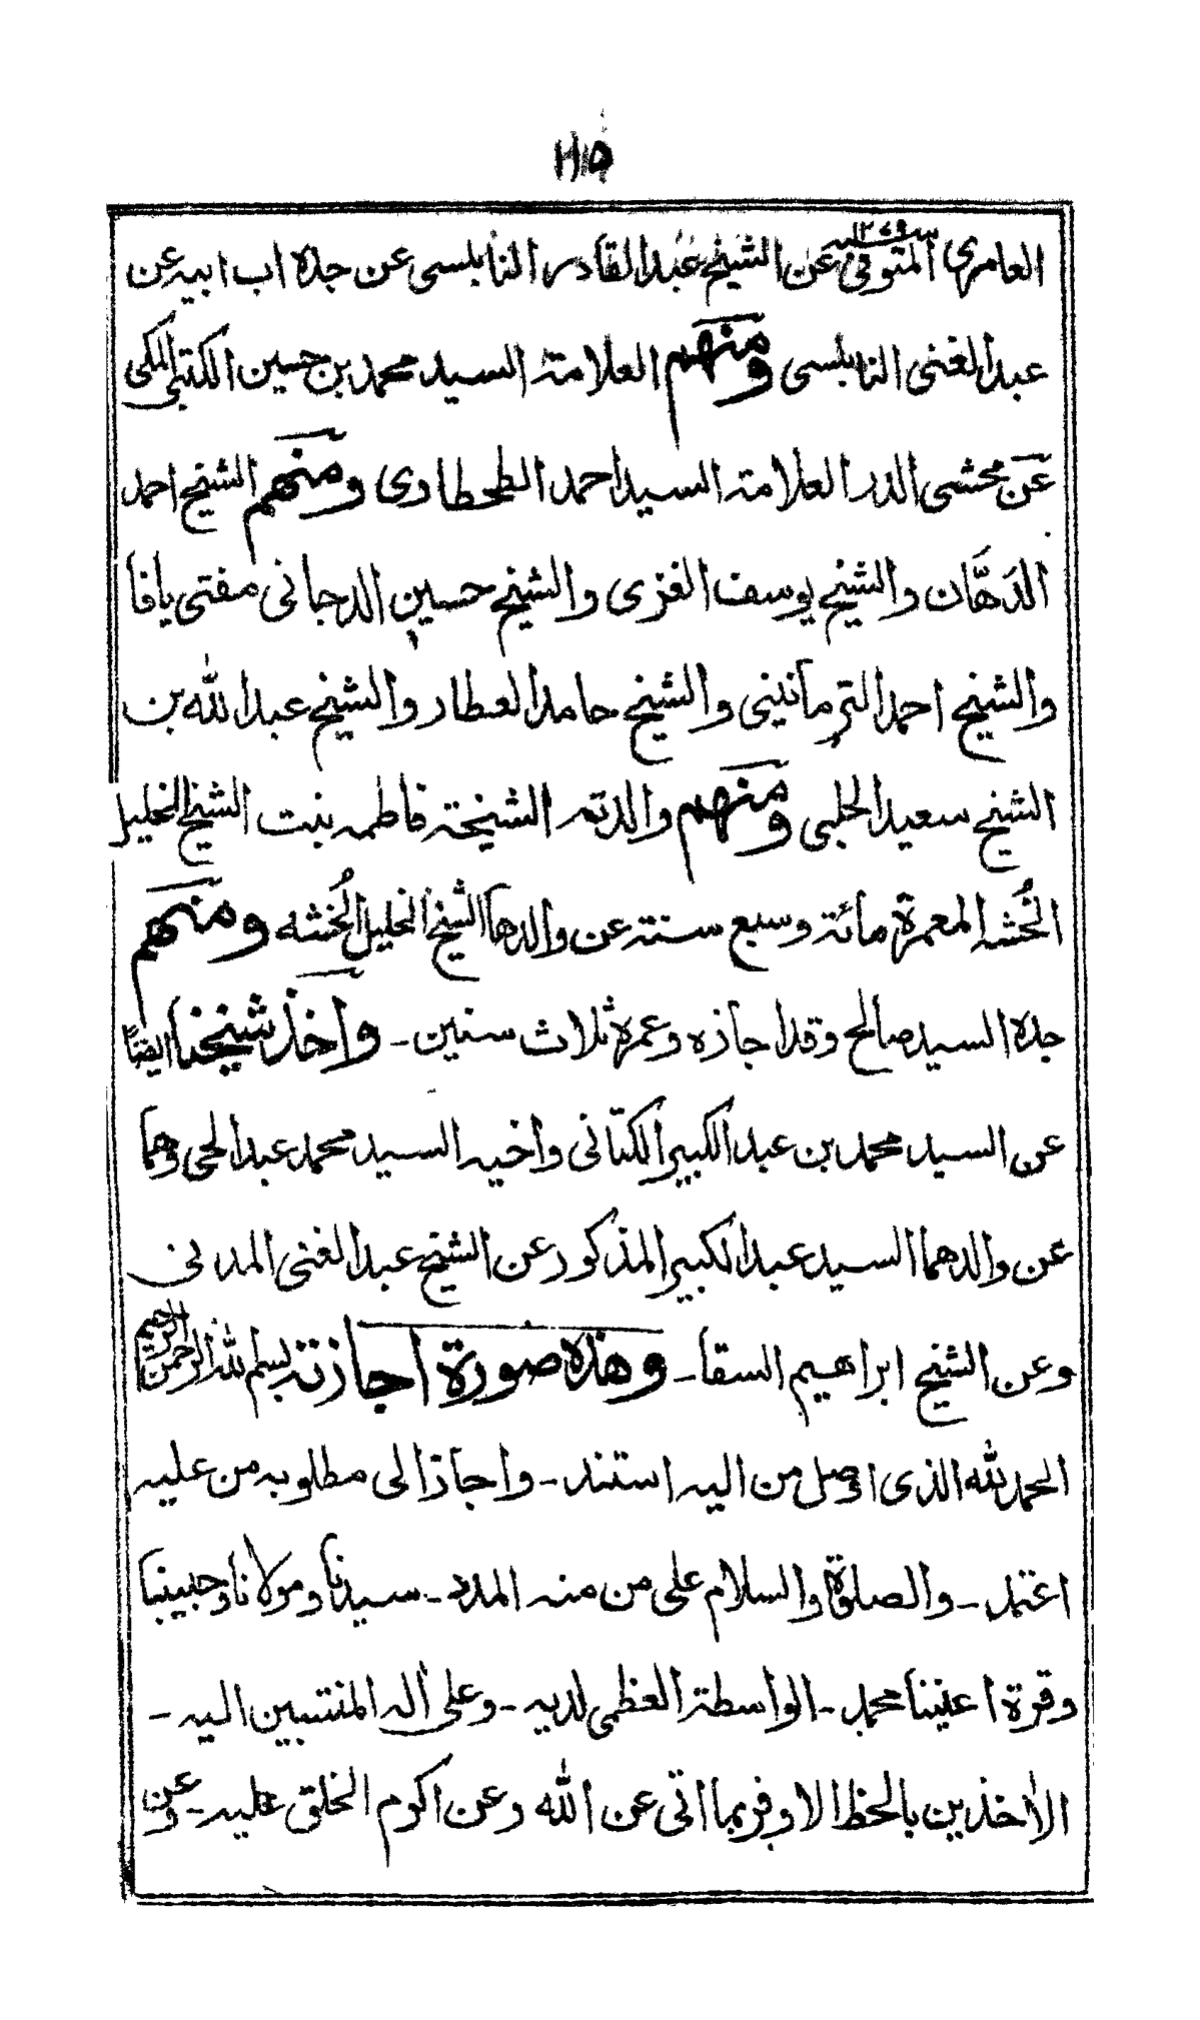 العامري المتوفى سنه ١٢٧٩ عن الشيخ عبد القادر النابلسى عن جده اب ابيه عن
عبد الغنى النابلسى ومنهم العلامة السيد محمد بن حسين الكتبى المكى
عن محشى الدر العلامة السيد احمد الطحطاوى ومنهم الشيخ احمد
الدهَّان والشيخ يوسف الغزى والشيخ حسين الدجانى مفتى يافا
والشيخ احمد الترمانينى والشيخ حامد العطار والشيخ عبد الله بن
الشيخ سعيد الحلبى ومنهم والدته الشيخة فاطمه بنت الشيخ الخليل
الخُشه المعمرة مائة وسبع سنة عن والدها الشيخ الخليل الخُشه ومنهم
جده السيد صالح وقد اجازه وعمره ثلاث سنين - واخذ شيخنا ايضًا
عن السيد محمد بن عبد الكبير الكتانى واخيه السيد محمد عبد الحى وهما
عن والدهما السيد عبد الكبير المذكور عن الشيخ عبد الغنى المدنى
وعن الشيخ ابراهيم السقا - وهذه صورة اجازته بسم الله الرحمن الرحيم
الحمد لله الذى اوصل من اليه استند - واجاز الى مطلوبه من عليه
اعتمد - والصلوة والسلام على من منه المدد - سيدنا ومولانا وحبيبنا
وقرة اعيننا محمد - الواسطة العظمى لديه - وعلى اله المنتسبين اليه -
الاخذين بالحظ الاوفر بما اتى عن الله وعن اكرم الخلق عليه - وعن